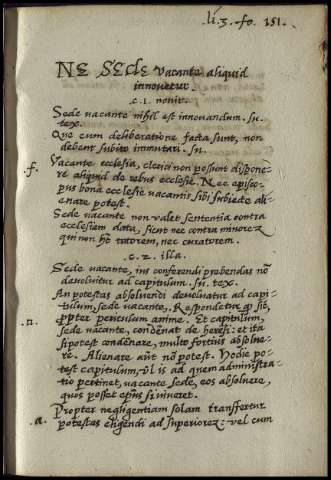 li. 3. fo. 151.
NE SEDE vacante aliquid
innovetur.
c. 1. novit.
Sede vacante nihil est innovandum. su.
tex.
Que cum deliberatione facta sunt, non
debent subito immutari. su.
f. Vacante ecclesia, clerici non possunt dispone-
re aliquid de rebus ecclesie. Nec episco-
pus bona ecclesie vacantis sibi subiecte ali-
enare potest.
Sede vacante non valet sententia contra
ecclesiam data, sicut nec contra minorez
qui non hẽ tutorem, nec curatorem.
c. 2. illa.
Sede vacante, ius conferendi prebendas nõ
devoluitur ad capitulum. su. tex.
An potestas absolvendi devoluatur ad capi-
tulum, sede vacante. Respondetur qp sic,
propter periculum anime. Et capitulum,
n. sede vacante, condẽnat de heresi: et ita
si potest condẽnare, multo fortius absolve-
re. Alienare aũt nõ potest. Hodie po-
test capitulum, vl is ad quem administra-
tio pertinet, vacante sede, eos absolvere,
quos posset epũs si viveret.
Propter negligentiam solam transfertur
a. potestas eligendi ad superiorez: vel cum